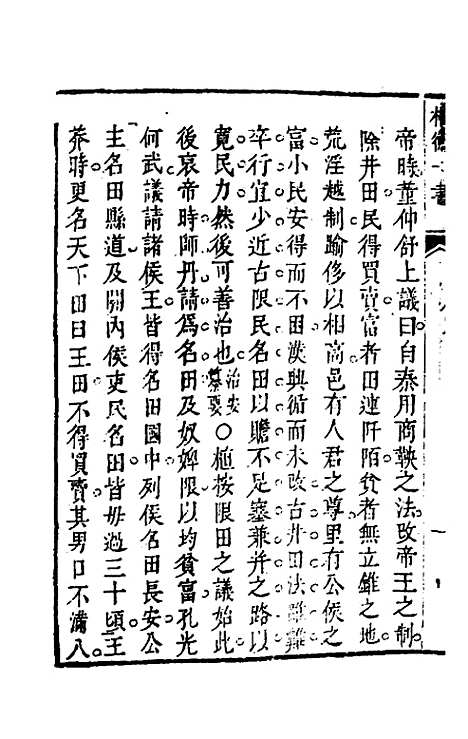 帝時董仲舒上議曰自秦用商鞅之法改帝王之制
除井田民得買賣富者田連阡陌貧者無立錐之地
荒淫越制踰侈以相高邑有人君之尊里有公侯之
富小民安得而不困漢興循而未改古井田法雖難
卒行宜少近古限民名田以贍不足塞兼并之路以
寬民力然後可善治也治安纂要○植按限田之議始此
後哀帝時師丹請爲名田及奴婢限以均貧富孔光
何武議請諸侯王皆得名田國中列侯名田長安公
主名田縣道及關內侯吏民名田皆毋過三十頃王
莽時更名天下田曰王田不得買賣其男口不滿八